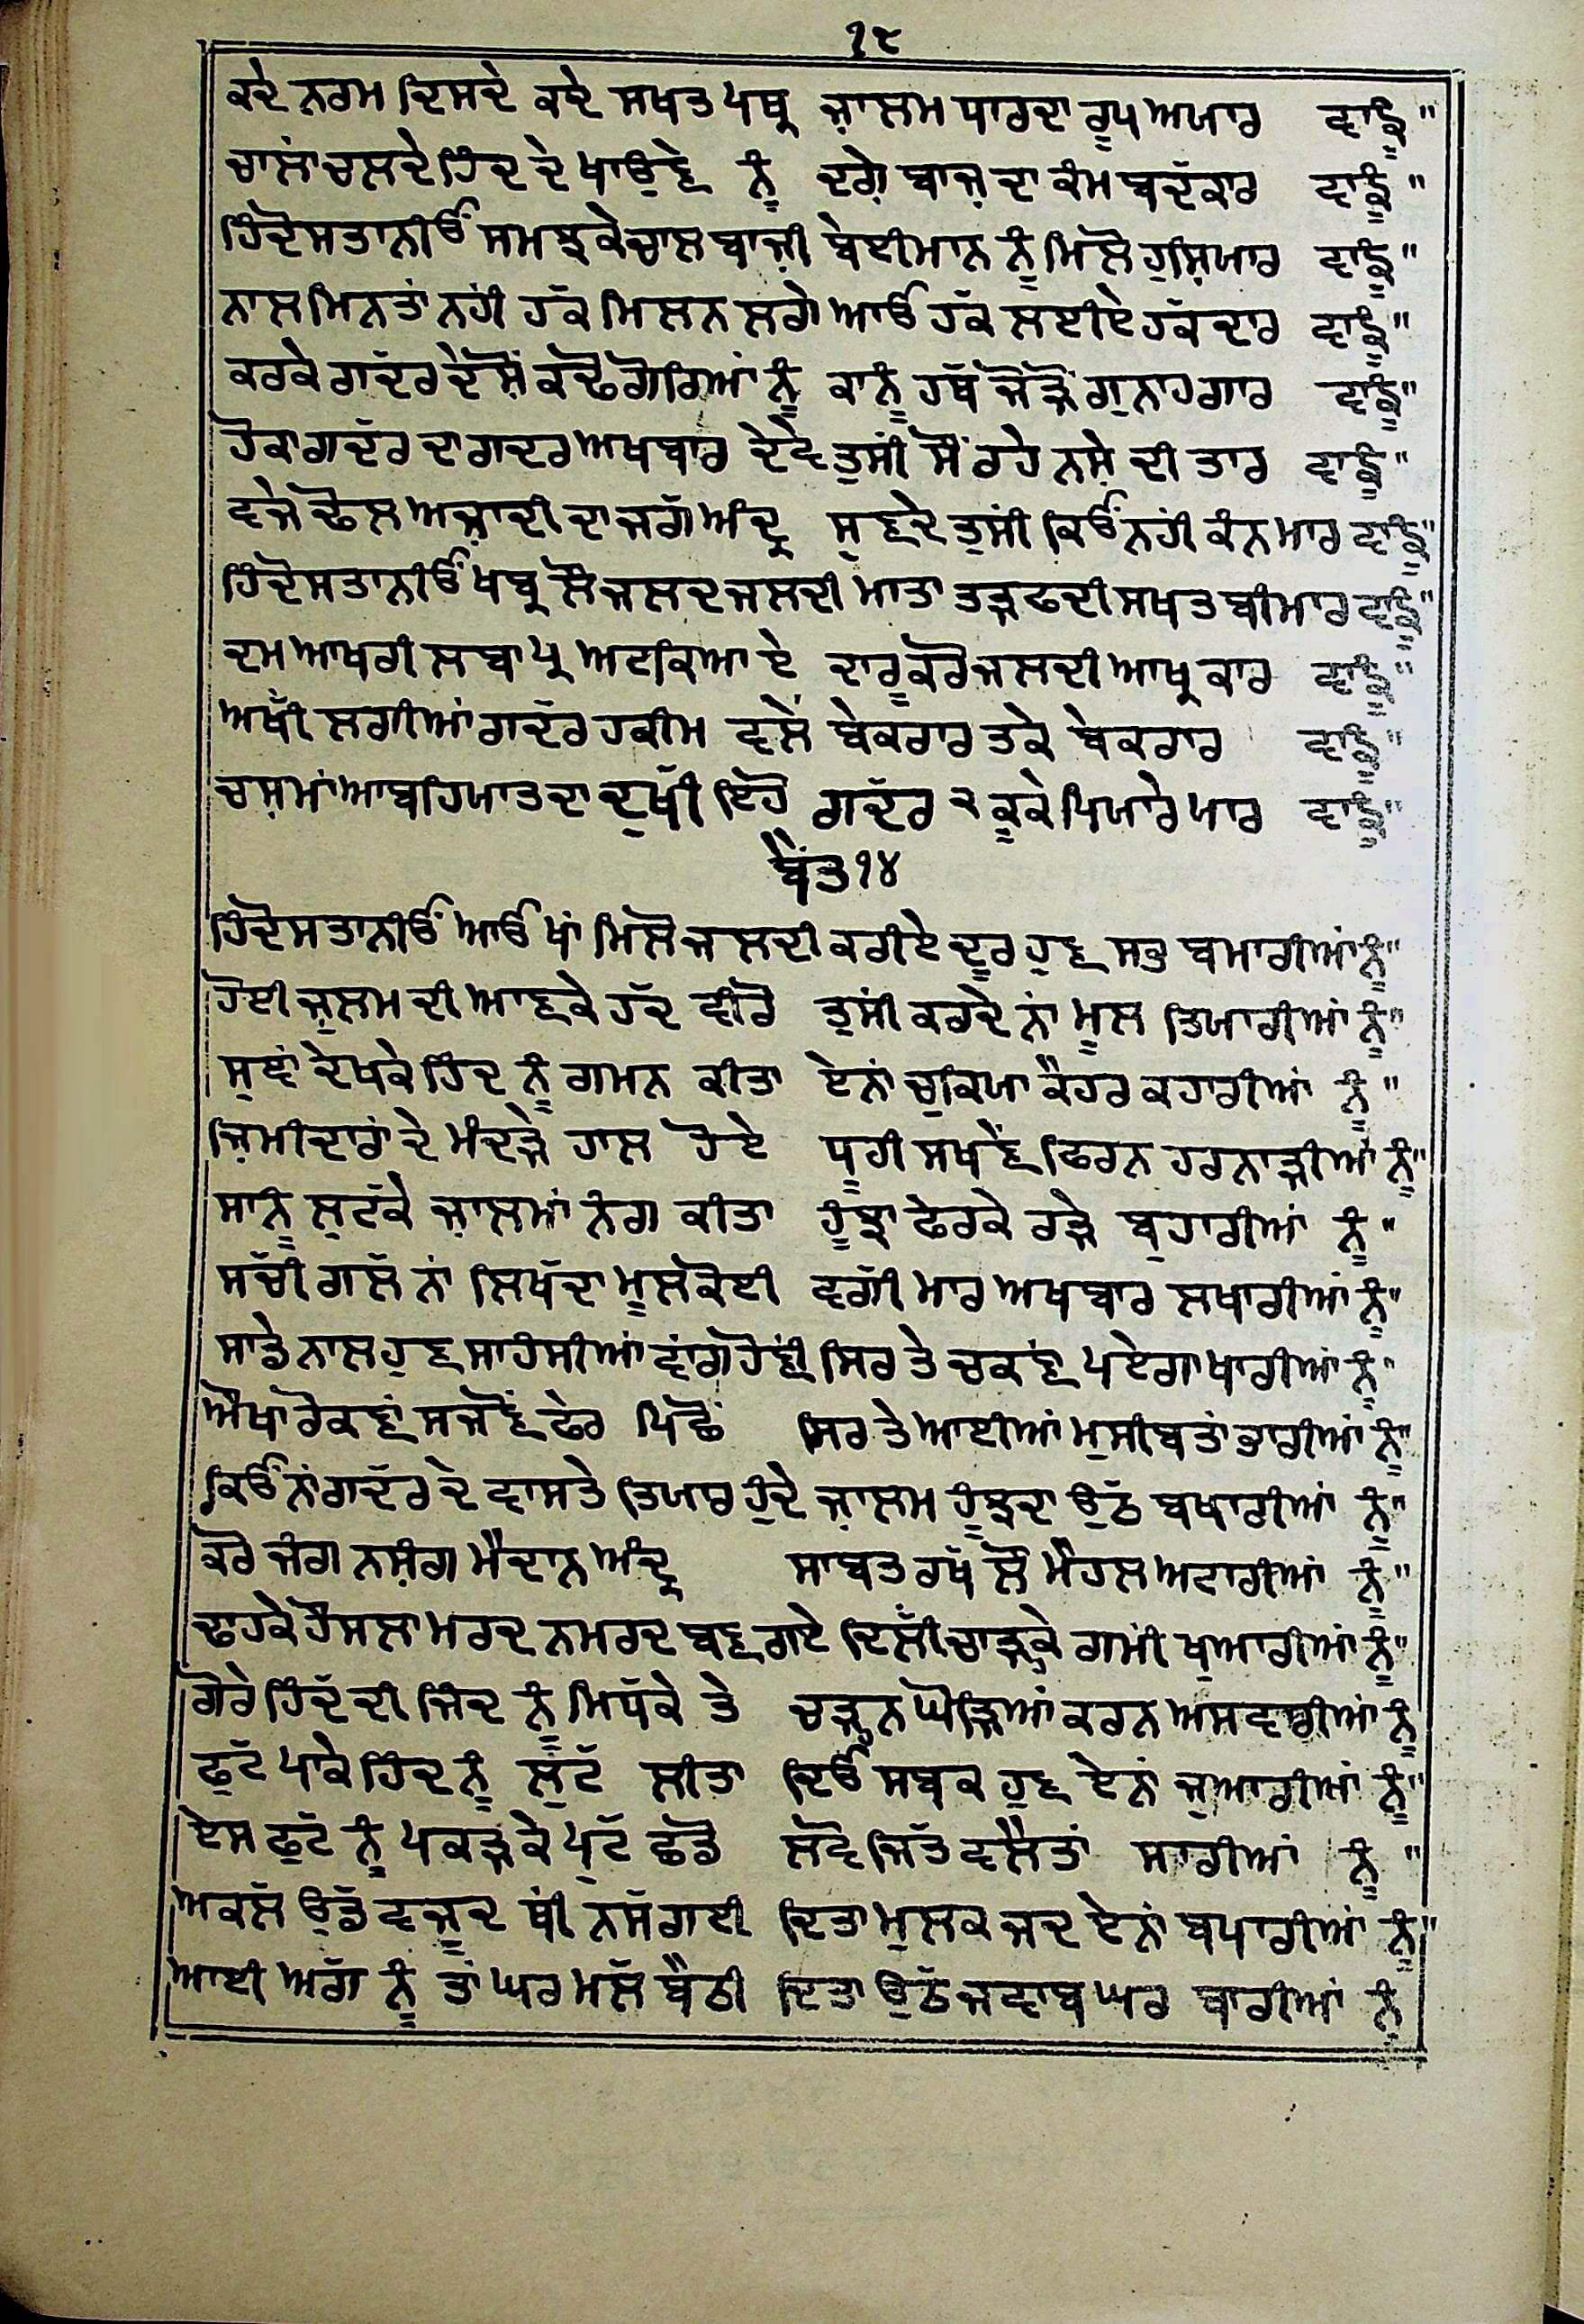 ੧੮
ਕਦੇ ਨਰਮ ਦਿਸਦੇ ਕਦੇ ਸਖਤ ਪਥ੍ਰ ਜ਼ਾਲਮ ਧਾਰਦਾ ਰੂਪ ਅਯਾਰ ਵਾਙੂੰ"
ਚਾਲਾਂ ਚਲਦੇ ਹਿੰਦ ਦੇ ਖਾਉਣੇ ਨੂੰ ਦਗੇ਼ ਬਾਜ਼ ਦਾ ਕੰਮ ਬਦੱਕਾਰ ਵਾਙੂੰ"
ਹਿੰਦੋਸਤਾਨੀਓਂ ਸਮਝ ਕੇ ਚਾਲ ਬਾਜ਼ੀ ਬੇਈਮਾਨ ਨੂੰ ਮਿਲੋ ਹੁਸ਼ਿਯਾਰ ਵਾਙੂੰ"
ਨਾਲ ਮਿਨਤਾਂ ਨਹੀਂ ਹੱਕ ਮਿਲਨ ਲਗੇ ਆਓ ਹੱਕ ਲਈਏ ਹੱਕਦਾਰ ਵਾਙੂੰ"
ਕਰਕੇ ਗਦੱਰ ਦੇਸ਼ੋਂ ਕਢੋ ਗੋਰਿਆਂ ਨੂੰ ਕਾਨੂੰ ਹਥੱ ਜੋੜੋਂ ਗੁਨਾਹਗਾਰ ਵਾਙੂੰ"
ਹੋਕਾ ਗਦੱਰ ਦਾ ਗਦਰ ਅਖਬਾਰ ਦੇਵੇ ਤੁਸੀਂ ਸੌਂ ਰਹੇ ਨਸ਼ੇ ਦੀ ਤਾਰ ਵਾਙੂੰ"
ਵਜੇ ਢੋਲ ਅਜ਼ਾਦੀ ਦਾ ਜਗੱ ਅੰਦ੍ਰ ਸੁਣਦੇ ਤੁਸੀਂ ਕਿਓਂ ਨਹੀਂ ਕੰਨ ਮਾਰ ਵਾਙੂੰ"
ਹਿੰਦੋਸਤਾਨੀਓਂ ਖਬ੍ਰ ਲੌ ਜਲਦ ਜਲਦੀ ਮਾਤਾ ਤੜਫਦੀ ਸਖਤ ਬੀਮਾਰ ਵਾਙੂੰ"
ਦਮ ਆਖਰੀ ਲਬਾ ਪ੍ਰ ਅਟਕਿਆ ਏ ਦਾਰੂ ਕਰੋ ਜਲਦੀ ਆਖ੍ਰਕਾਰ ਵਾਙੂੰ"
ਅਖੀਂ ਲਗੀਆਂ ਗਦੱਰ ਹਕੀਮ ਵਲੇਂ ਬੇਕਰਾਰ ਤਕੇ ਬੇਕਰਾਰ ਵਾਙੂੰ"
ਚਸ਼ਮਾਂ ਆਬਹਿਯਾਤ ਦਾ ਦੁਖੀਂ ਇਹੋ ਗਦੱਰ ੨ ਕੂਕੇ ਪਿਯਾਰੇ ਯਾਰ ਵਾਙੂੰ"
ਬੈਂਤ ੧੪
ਹਿੰਦੋਸਤਾਨੀਓਂ ਆਓ ਖਾਂ ਮਿਲੋ ਜਲਦੀ ਕਰੀਏ ਦੂਰ ਹੁਣ ਸਭ ਬਮਾਰੀਆਂ ਨੂੰ"
ਹੋਈ ਜ਼ੁਲਮ ਦੀ ਆਣਕੇ ਹੱਦ ਵੀਰੋ ਤੁਸੀਂ ਕਰਦੇ ਨਾਂ ਮੂਲ ਤਿਯਾਰੀਆਂ ਨੂੰ"
ਸੁਞਾਂ ਦੇਖਕੇ ਹਿੰਦ ਨੂੰ ਗਮਨ ਕੀਤਾ ਏਨਾਂ ਚੁਕਿਯਾ ਕੈਹਰ ਕਹਾਰੀਆਂ ਨੂੰ"
ਜ਼ਿਮੀਦਾਰਾਂ ਦੇ ਮੰਦੜੇ ਹਾਲ ਹੋਏ ਧੂਹੀ ਸਖਣੇਂ ਫਿਰਨ ਹਰਨਾੜੀਆਂ ਨੂੰ"
ਸਾਨੂੰ ਲੁਟੱਕੇ ਜ਼ਾਲਮਾਂ ਨੰਗ ਕੀਤਾ ਹੂੰਝਾ ਫੇਰਕੇ ਰੜੇ ਬੁਹਾਰੀਆਂ ਨੂੰ"
ਸੱਚੀ ਗਲੱ ਨਾਂ ਲਿਖੱਦਾ ਮੂਲ ਕੋਈ ਵਗੀਂ ਮਾਰ ਅਖਬਾਰ ਲਖਾਰੀਆਂ ਨੂੰ"
ਸਾਡੇ ਨਾਲ ਹੁਣ ਸਾਹੰਸੀਆਂ ਵਾਂਗ ਹੋਣੀਂ ਸਿਰ ਤੇ ਚਕਣਾਂ ਪਏਗਾ ਖਾਰੀਆਂ ਨੂੰ"
ਔਖਾ ਰੋਕਣਾਂ ਸਜੋਂਣ ਫੇਰ ਪਿਛੋਂ ਸਿਰ ਤੇ ਆਈਆਂ ਮੁਸੀਬਤਾਂ ਭਾਰੀਆਂ ਨੂੰ"
ਕਿਓਂ ਨਾਂ ਗਦੱਰ ਦੇ ਵਾਸਤੇ ਤਿਯਾਰ ਹੁੰਦੇ ਜ਼ਾਲਮ ਹੂੰਝਦਾ ਉਠੱ ਬਖਾਰੀਆਂ ਨੂੰ"
ਕਰੋ ਜੰਗ ਨਸ਼ੰਗ ਮੈਦਾਨ ਅੰਦ੍ਰ ਸਾਬਤ ਰਖੱ ਲੋ ਮੈਹਲ ਅਟਾਰੀਆਂ ਨੂੰ"
ਢਾਹਕੇ ਹੌਸਲਾ ਮਰਦ ਨਮਰਦ ਬਣ ਗਏ ਦਿਲੀਂ ਚਾੜ੍ਹਕੇ ਗਮਾਂ ਖੁਆਰੀਆਂ ਨੂੰ"
ਗੋਰੇ ਹਿੰਦੱ ਦੀ ਜਿੰਦ ਨੂੰ ਮਿਧੱਕੇ ਤੇ ਚੜ੍ਹਨ ਘੋੜਿਆਂ ਕਰਨ ਅਸਵਾਰੀਆਂ ਨੂੰ
ਫੁਟੱ ਪਾਕੇ ਹਿੰਦ ਨੂੰ ਲੁਟੱ ਲੀਤਾ ਦਿਓ ਸਬਕ ਹੁਣ ਏਨਾਂ ਜੁਆਰੀਆਂ ਨੂੰ"
ਏਸ ਫੁਟੱ ਨੂੰ ਪਕੜਕੇ ਪੁਟੱ ਛਡੋ ਲਵੋ ਜਿੱਤ ਵਲੈਤਾਂ ਸਾਰੀਆਂ ਨੂੰ"
ਅਕਲੱ ਉਡੱ ਵਜੂਦ ਥੀਂ ਨਸੱ ਗਈ ਦਿਤਾ ਮੁਲਕ ਜਦ ਏਨਾਂ ਬਪਾਰੀਆਂ ਨੂੰ"
ਆਈ ਅਗੱ ਨੂੰ ਤਾਂ ਘਰ ਮਲੱ ਬੈਠੀ ਦਿਤਾ ਉਠੱ ਜਵਾਬ ਘਰ ਬਾਰੀਆਂ ਨੂੰ